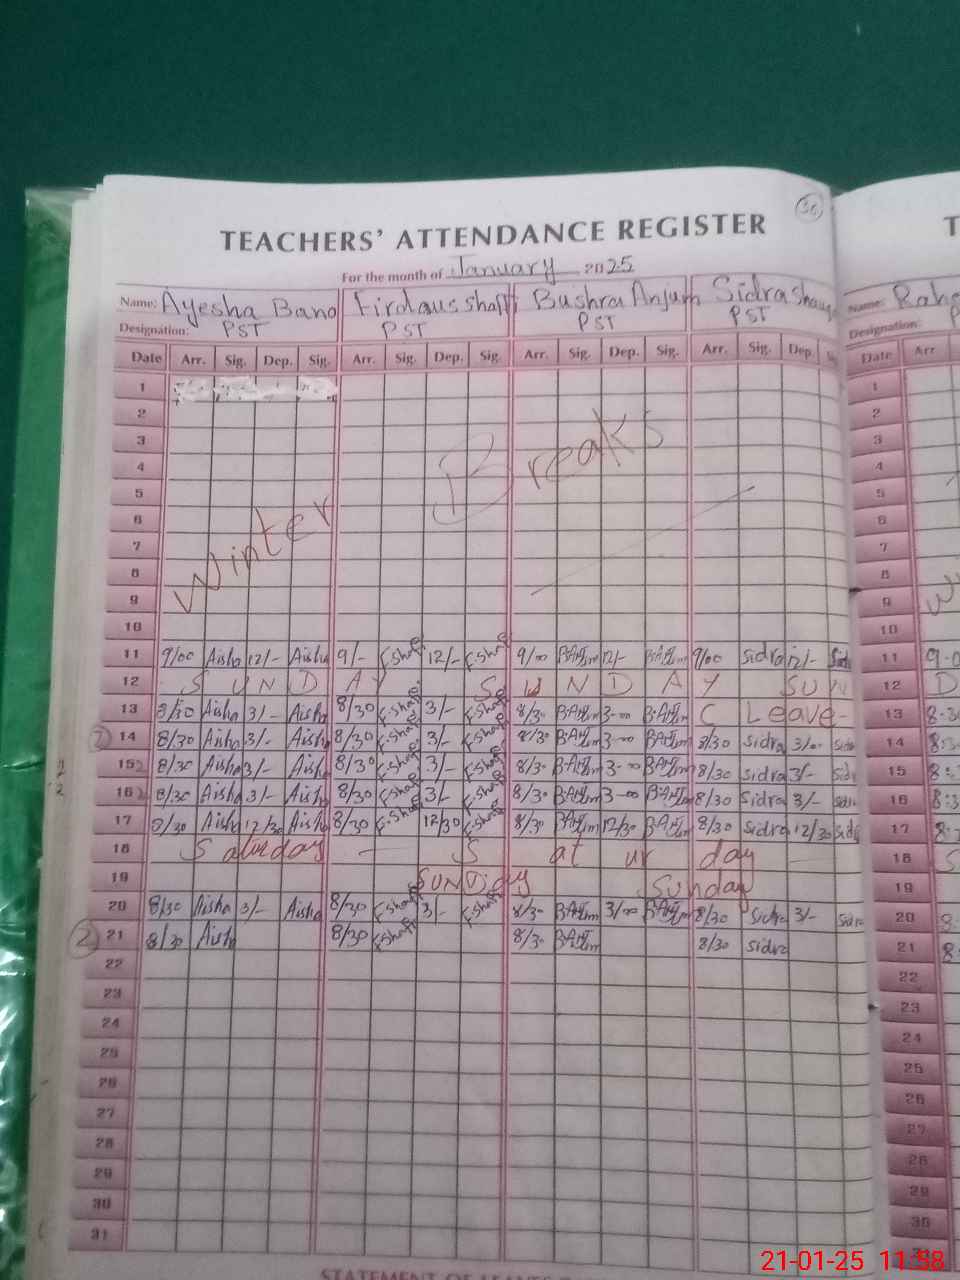 36
TEACHERS' ATTENDANCE REGISTER
For the month of January 2025
Name: Ayesha Bano Firdaus Shafi Bushra Anjum Sidra
Designation: PST PST PST PST
Date Arr. Sig. Dep. Sig. Arr. Sig. Dep. Sig. Arr. Sig. Dep. Sig. Arr. Sig. Dep.
1
2
3
4
5
6
7
8
9
10
Winter Breaks
11 9/00 Aisha 12/- Aisha 9/- F.Shafi 12/- F.Shafi 9/00 B.Anjum 12/- B.Anjum 9/00 Sidra 12/- Sidra
12 SUNDAY SUNDAY SUN
13 8/30 Aisha 3/- Aisha 8/30 F.Shafi 3/- F.Shafi 8/30 B.Anjum 3-00 B.Anjum C Leave-
14 8/30 Aisha 3/- Aisha 8/30 F.Shafi 3/- F.Shafi 8/30 B.Anjum 3-00 B.Anjum 8/30 Sidra 3/- Sidra
15 8/30 Aisha 3/- Aisha 8/30 F.Shafi 3/- F.Shafi 8/30 B.Anjum 3-00 B.Anjum 8/30 Sidra 3/- Sidra
16 8/30 Aisha 3/- Aisha 8/30 F.Shafi 3/- F.Shafi 8/30 B.Anjum 3-00 B.Anjum 8/30 Sidra 3/- Sidra
17 8/30 Aisha 12/30 Aisha 8/30 F.Shafi 12/30 F.Shafi 8/30 B.Anjum 12/30 B.Anjum 8/30 Sidra 12/30 Sidra
18 Saturday - Saturday
19 SUNDay Sunday
20 8/30 Aisha 3/- Aisha 8/30 F.Shafi 3/- F.Shafi 8/30 B.Anjum 3/00 B.Anjum 8/30 Sidra 3/- Sidra
21 8/30 Aish 8/30 F.Shafi 8/30 B.Anjum 8/30 Sidra
22
23
24
25
26
27
28
29
30
31
STATEMENT OF LEAVES
Name:
Designation:
Date Arr
1
2
3
4
5
6
7
8
9
10
11
12
13
14
15
16
17
18
19
20
21
22
23
24
25
26
27
28
29
30
21-01-25 11:58